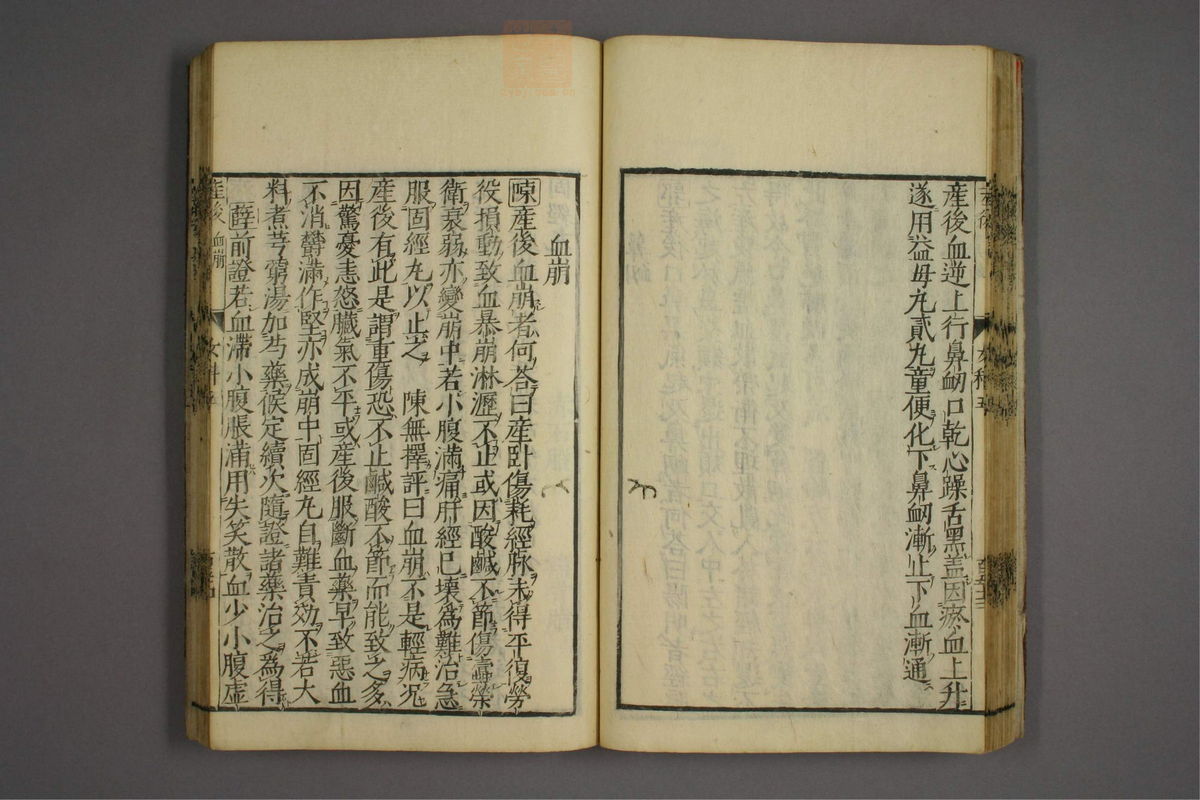 産後血逆上行鼻衂口乾心躁舌黑蓋因瘀血上升
遂用益母丸貳丸童便化下鼻衂漸止下血漸通
血崩
陳産後血崩者何荅曰産卧傷耗經脉未得平復勞
役損動致血暴崩淋瀝不止或因酸鹹不節傷蠹榮
衛衰弱亦變崩中若小腹滿痛肝經已壞為難治急
服固經丸以止之 陳無擇評曰血崩不是輕病况
産後有此是謂重傷恐不止鹹酸不節而能致之多
因驚憂恚怒臟氣不平或産後服斷血藥早致惡血
不消鬱滿作堅亦成崩中固經丸自難責効不若大
料煮芎藭湯加芍藥候定續次隨證諸藥治之為得
薛前證若血滯小腹脹滿用失笑散血少小腹虛
産後 血崩
女科五
産後
女科五